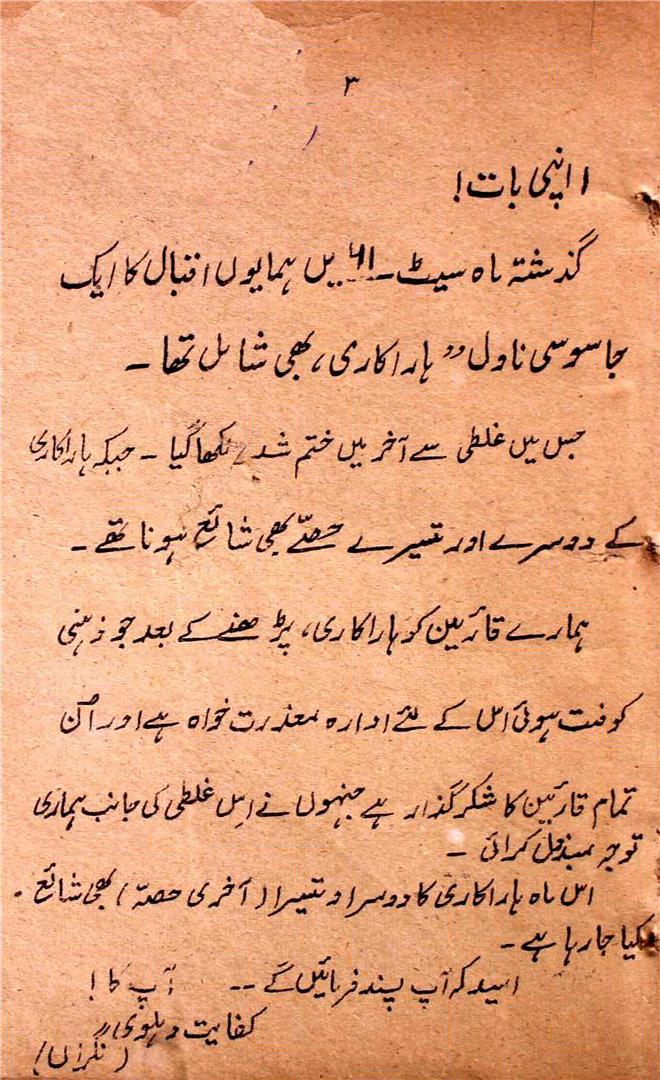 ۳
اپنی بات!
گذشتہ ماہ سیٹ۔ ۴۱ میں ہمایوں اقبال کا ایک
جاسوسی ناول "ہاراکاری، بھی شامل تھا۔
جس میں غلطی سے آخر میں ختم شد لکھا گیا۔ جبکہ ہاراکاری
کے دوسرے اور تیسرے حصے بھی شائع ہونا تھے۔
ہمارے قارئین کو ہاراکاری، پڑھنے کے بعد جو ذہنی
کوفت ہوئی اس کے لئے ادارہ معذرت خواہ ہے اور اُن
تمام قارئین کا شکر گذار ہے جنہوں نے اِس غلطی کی جانب ہماری
توجہ مبذول کرائی ۔
اس ماہ ہاراکاری کا دوسرا و تیسرا (آخری حصہ) بھی شائع
کیا جا رہا ہے۔
امید کہ آپ پسند فرمائیں گے ۔۔ آپ کا!
کفایت دہلوی
(نگراں)